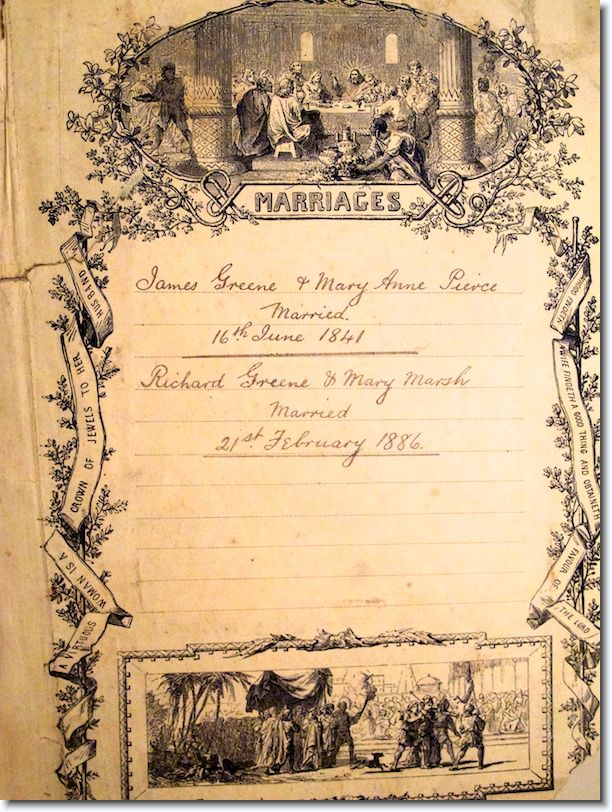 MARRIAGES.
James Greene & Mary Anne Pierce
Married.
16th June 1841
Richard Greene & Mary Marsh
Married
21st February 1886.
A VIRTUOUS
WOMAN IS A
CROWN OF JEWELS TO HER
HUSBAND
WHOSO FINDETH
A WIFE FINDETH A GOOD THING AND OBTAINETH
FAVOUR OF
THE LORD